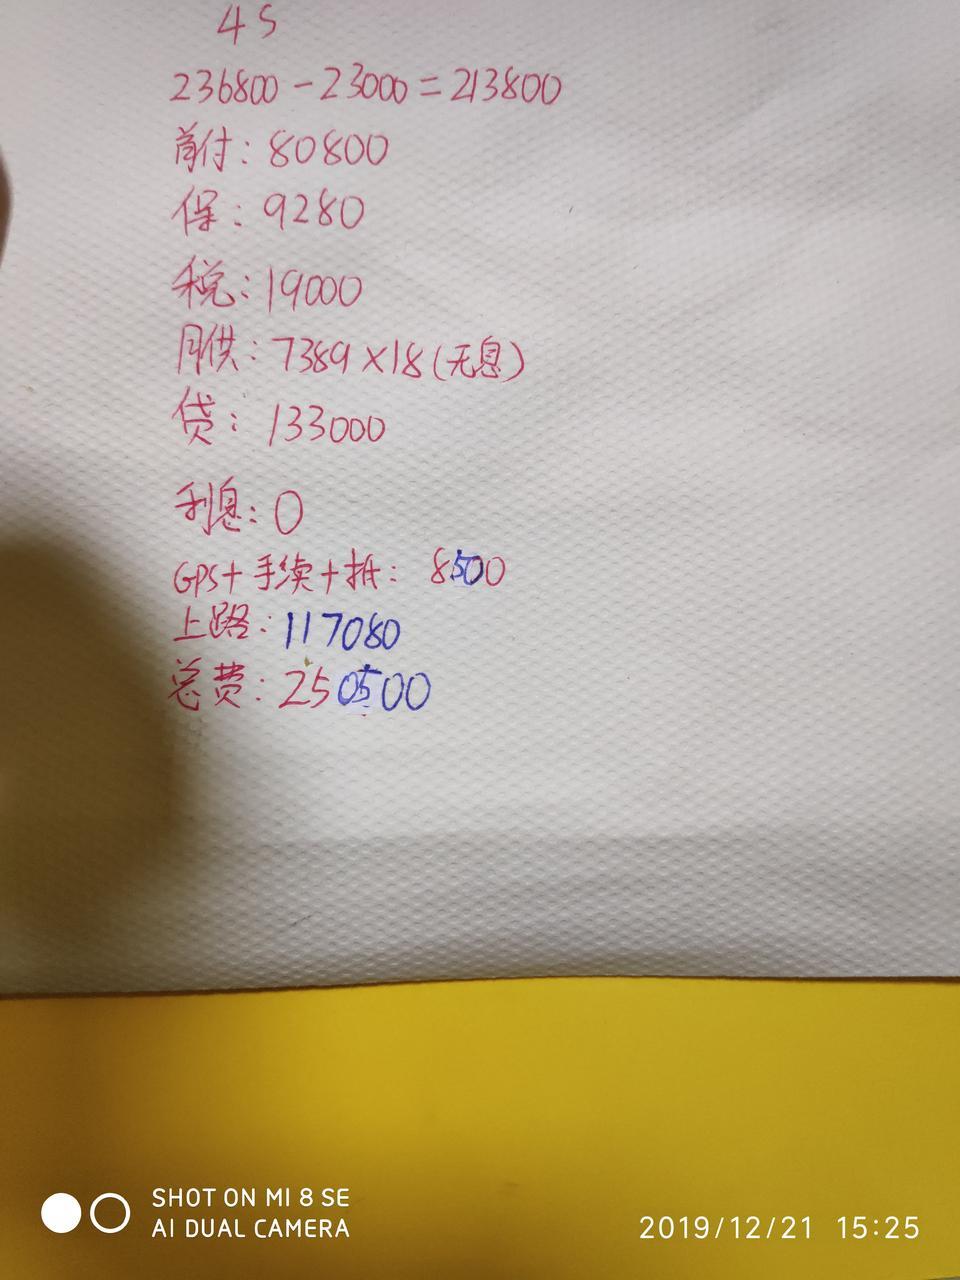 4S
236800-23000=213800
首付:80800
保:9280
税:19000
月供:7389×18(无息)
贷:133000
利息:0
GPS+手续+抵:8500
上路:117080
总费:250500
SHOT ON MI 8 SE
AI DUAL CAMERA
2019/12/21 15:25